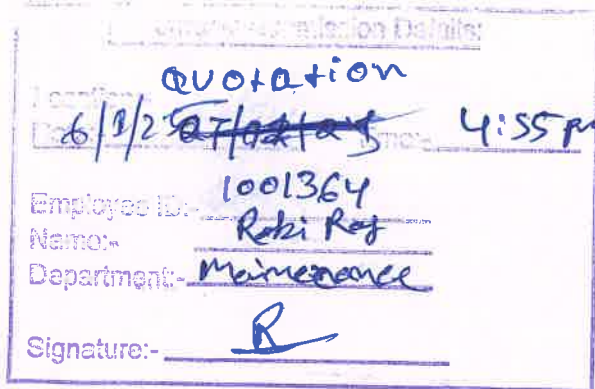 Details:
Quotation
Location:-
6/3/25 4:55 pm
Employee ID:- 1001364
Name:- Robi Roy
Department:- Maintenance
Signature:- R